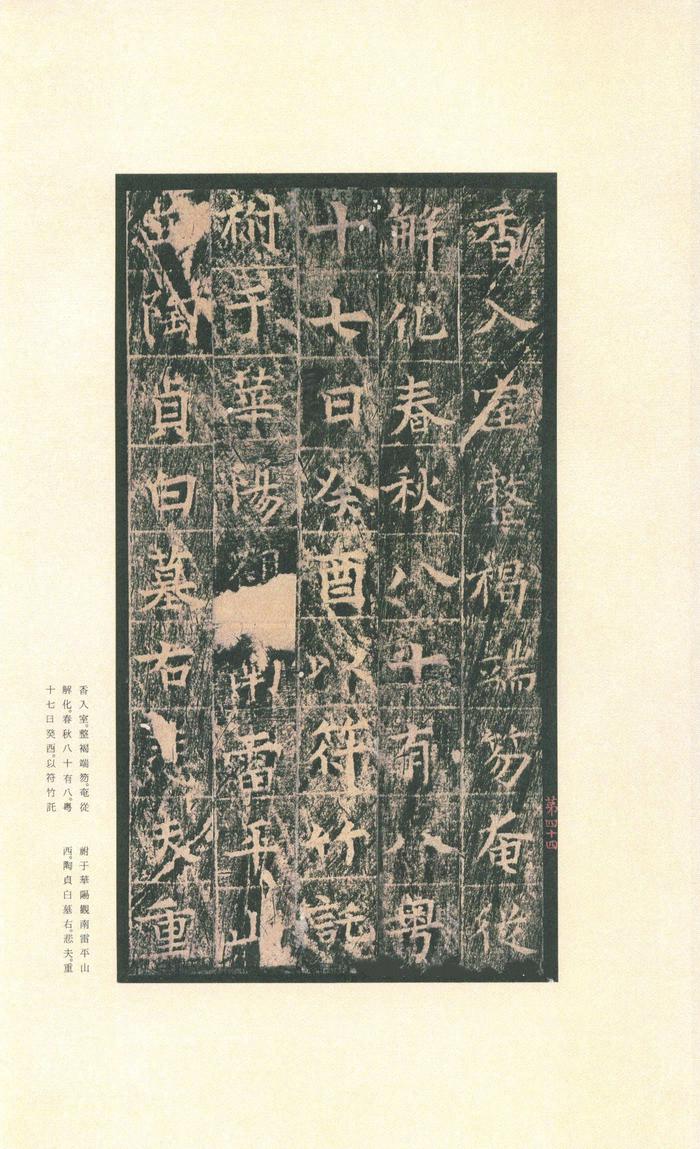 香入室整褐端笏奄從
解化春秋八十有八粤
十七日癸酉以符竹託
祔于華陽南雷平山
陶貞白墓右夫重
第四十四
香入室。整褐端笏。奄從
解化。春秋八十有八。粤
十七日癸酉。以符竹託
祔于華陽觀南雷平山
西。陶貞白墓右。悲夫。重